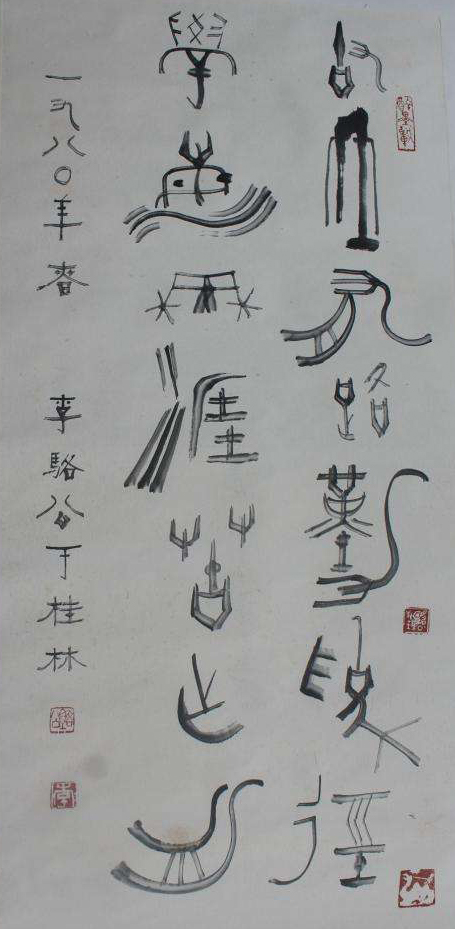 書山有路勤為徑
學海無涯苦作舟
一九八〇年春 李駱公于桂林